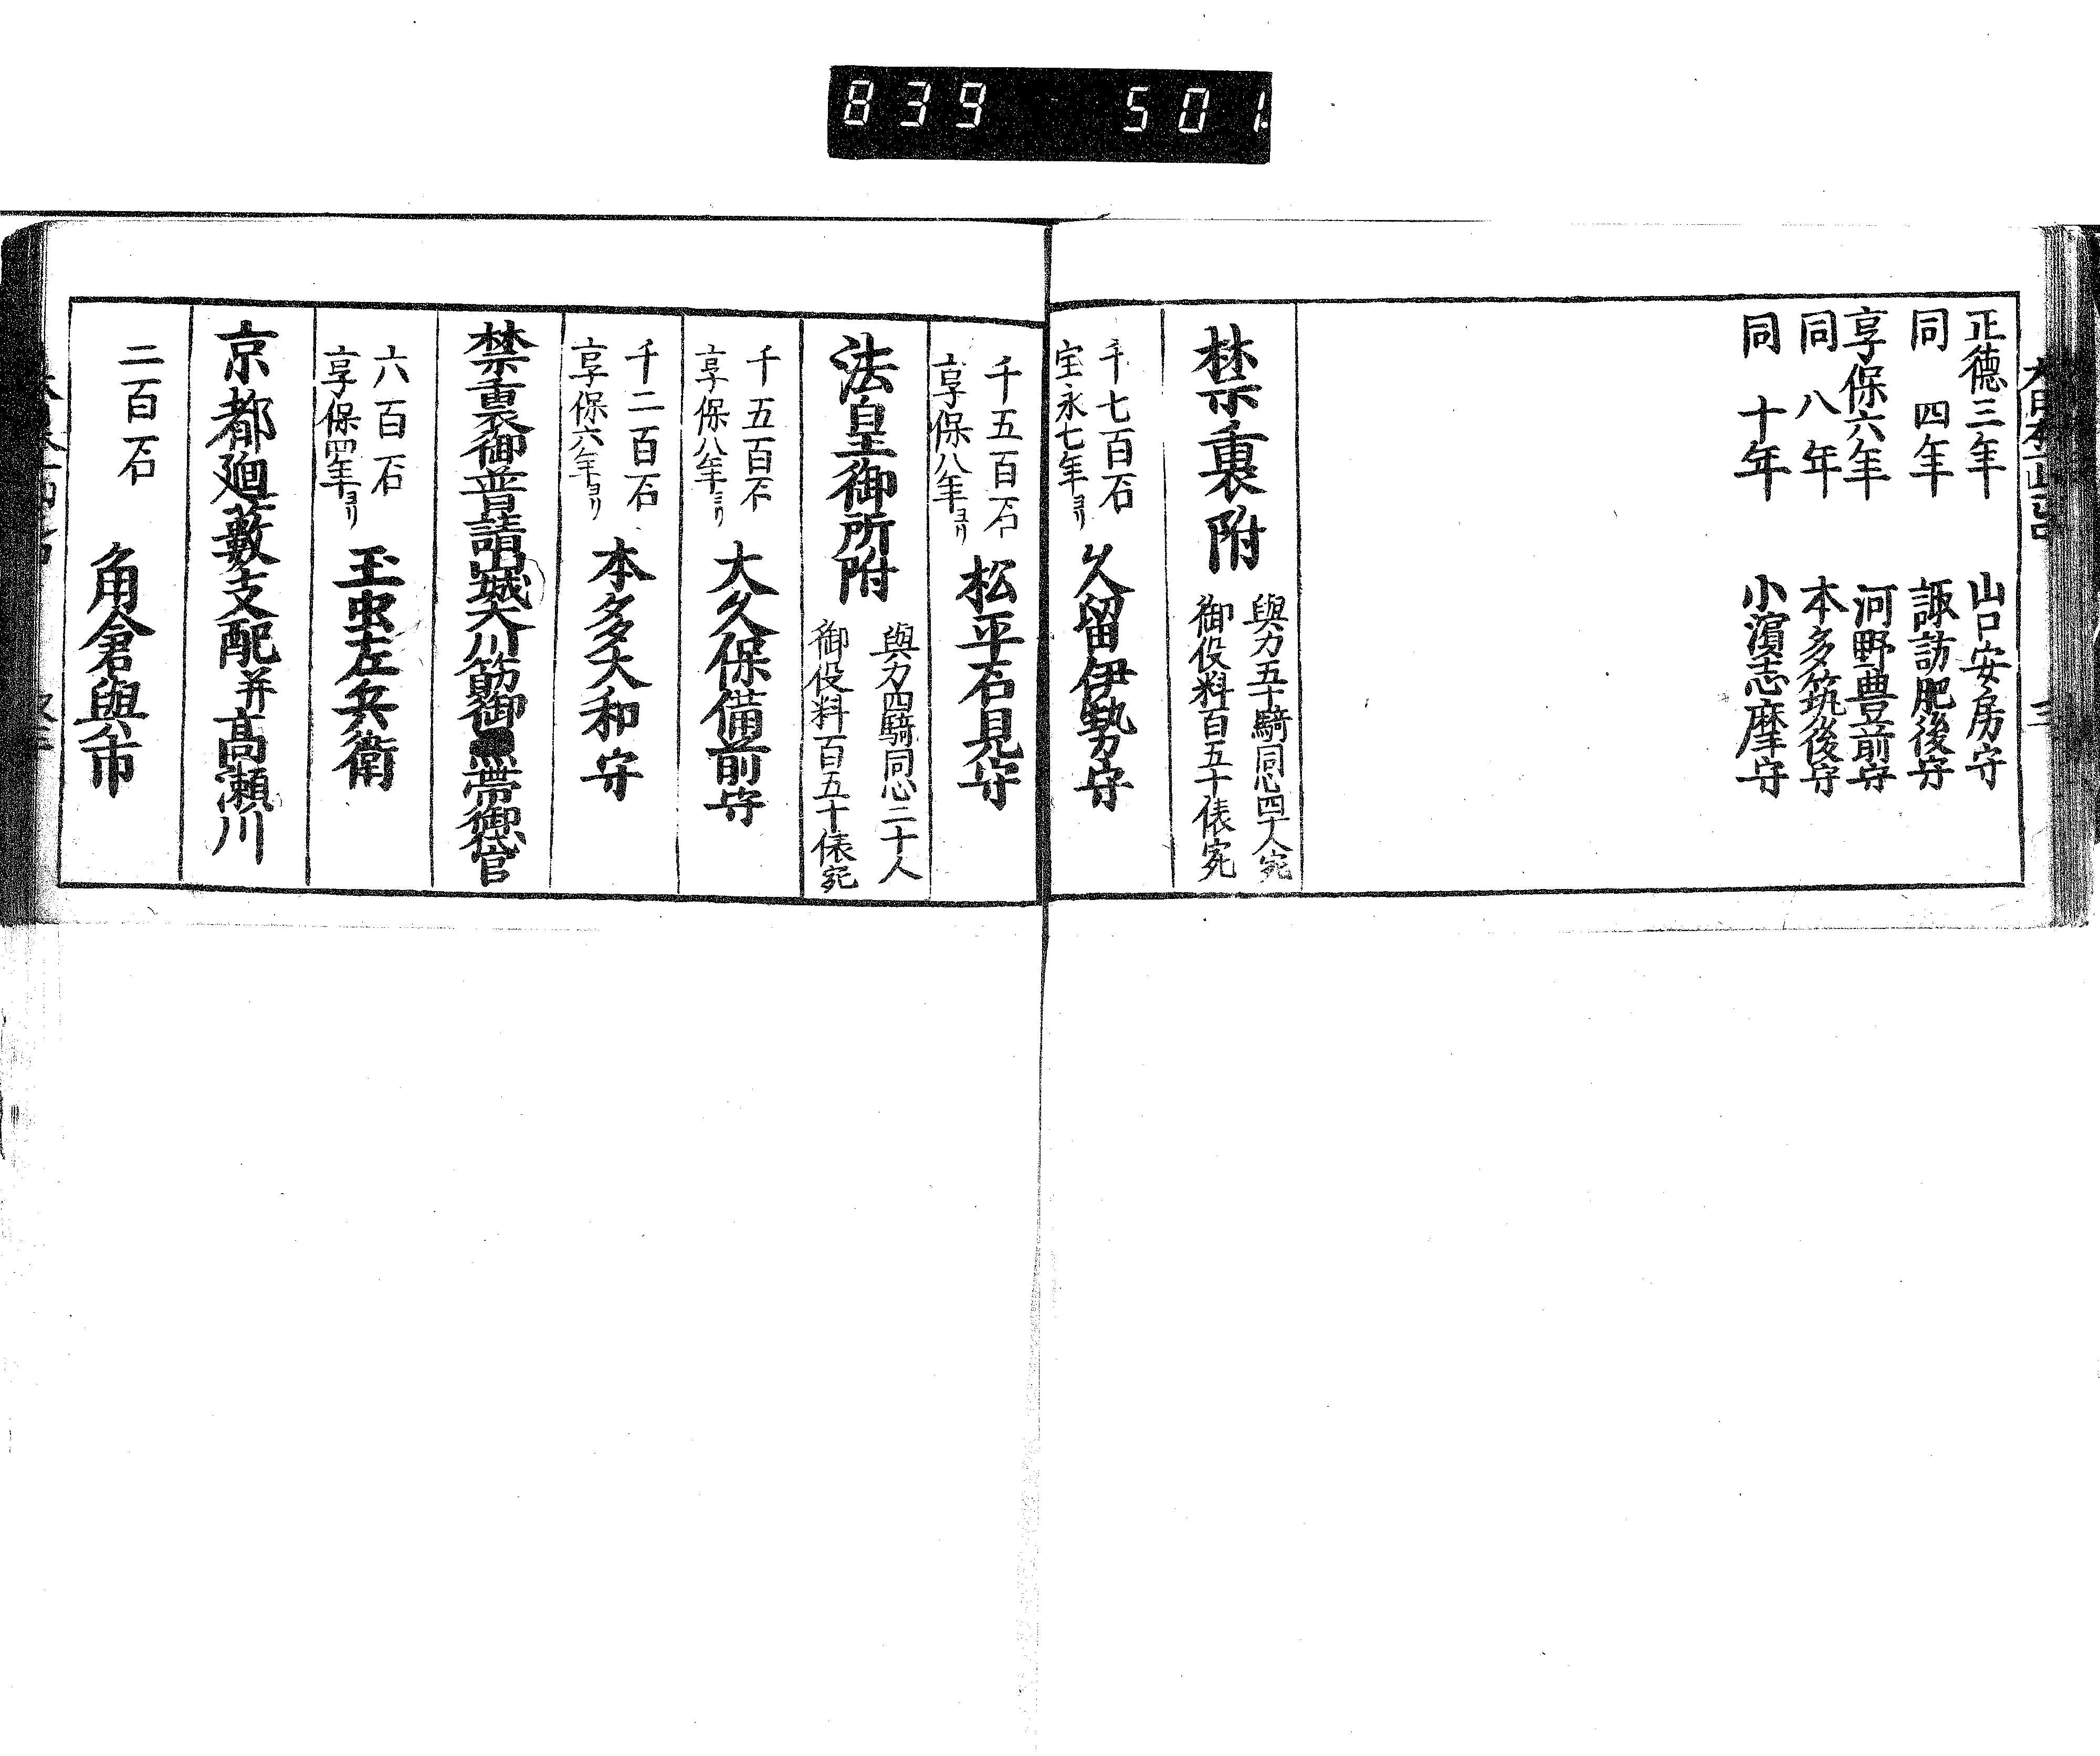 839 501
正徳三年 山口安房守
同 四年 諏訪肥後守
享保六年 河野豊前守
同 八年 本多筑後守
同 十年 小濱志摩守
禁裏附
與力五十騎同心四十人宛
御役料百五十俵宛
千七百石
宝永七年ヨリ
久留伊勢守
千五百石
享保八年ヨリ
松平石見守
法皇御所附
與力四騎同心二十人
御役料百五十俵宛
千五百石
享保八年ヨリ
大久保備前守
千二百石
享保六年ヨリ
本多大和守
禁裏御普請山城大川筋御帯御代官
六百石
享保四年ヨリ
玉虫左兵衛
京都廻藪支配并高瀬川
二百石
角倉與市